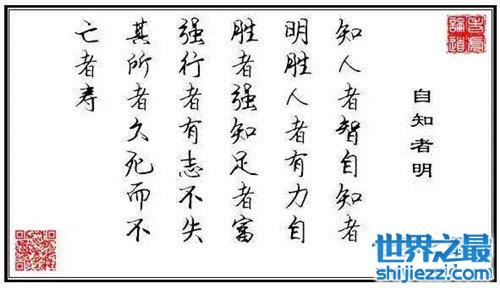 自知者明
知人者智自知者
明胜人者有力自
胜者强知足者富
强行者有志不失
其所者久死而不
亡者寿
世界之最
shijiezzi.com